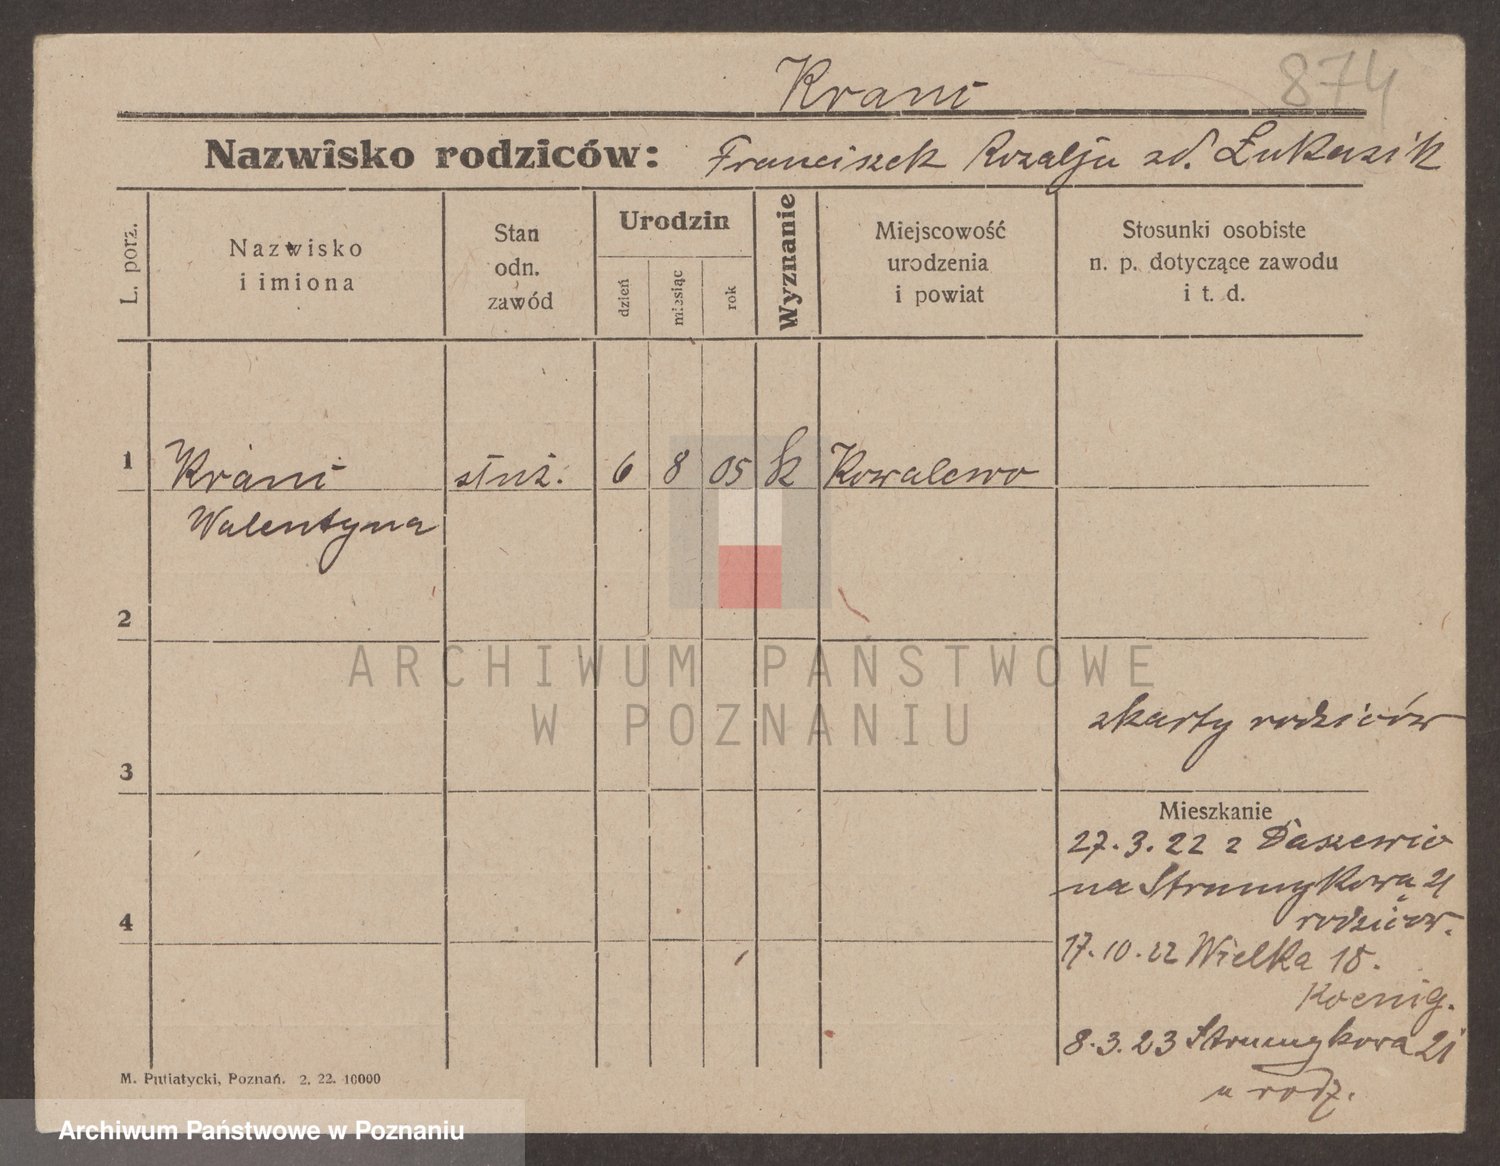 Krani
874
Nazwisko rodziców: Franciszek Rozalja zd. Łukasik
L. porz.
Nazwisko
i imiona
Stan
odn.
zawód
Urodzin
dzień
miesiąc
rok
Wyznanie
Miejscowość
urodzenia
i powiat
Stosunki osobiste
n. p. dotyczące zawodu
i t. d.
1 Krani służ. 6 8 05 k Kowalewo
Walentyna
2
ARCHIWUM PAŃSTWOWE
W POZNANIU
z karty rodziców
3
Mieszkanie
27.3.22 z Daszewic
na Strumykowa 21
rodziców.
4
17.10.22 Wielka 18.
Koenig.
8.3.23 Strumykowa 21
u rodz.
M. Putiatycki, Poznań. 2. 22. 10000
Archiwum Państwowe w Poznaniu